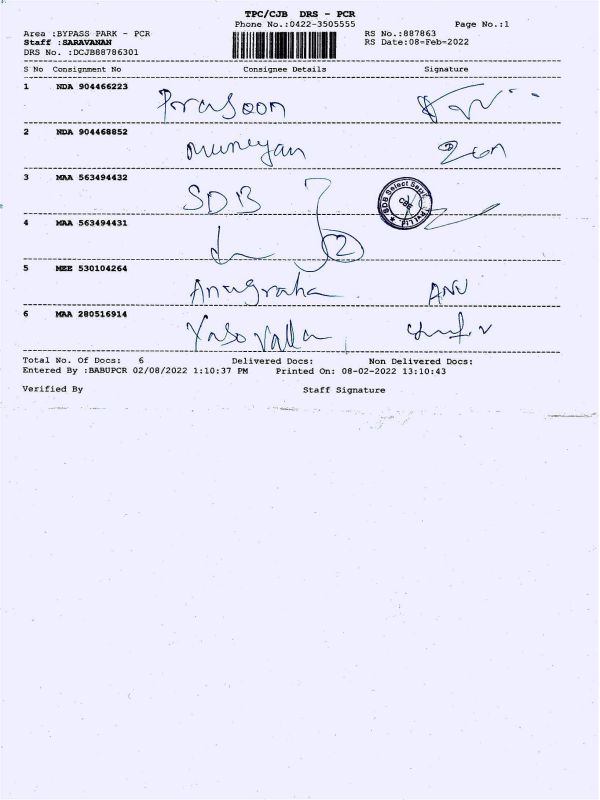 TPC/CJB DRS - PCR
Phone No.:0422-3505555 Page No.:1
Area :BYPASS PARK - PCR RS No.:887863
Staff :SARAVANAN RS Date:08-Feb-2022
DRS No. :DCJB88786301
S No Consignment No Consignee Details Signature
1 NDA 904466223 Prasoon
2 NDA 904468852 muneyan
3 MAA 563494432 SDB
SDB Select Pvt Ltd. CBE
4 MAA 563494431 2
5 MEE 530104264 Anugraha ANU
6 MAA 280516914
Total No. Of Docs: 6 Delivered Docs: Non Delivered Docs:
Entered By :BABUPCR 02/08/2022 1:10:37 PM Printed On: 08-02-2022 13:10:43
Verified By Staff Signature